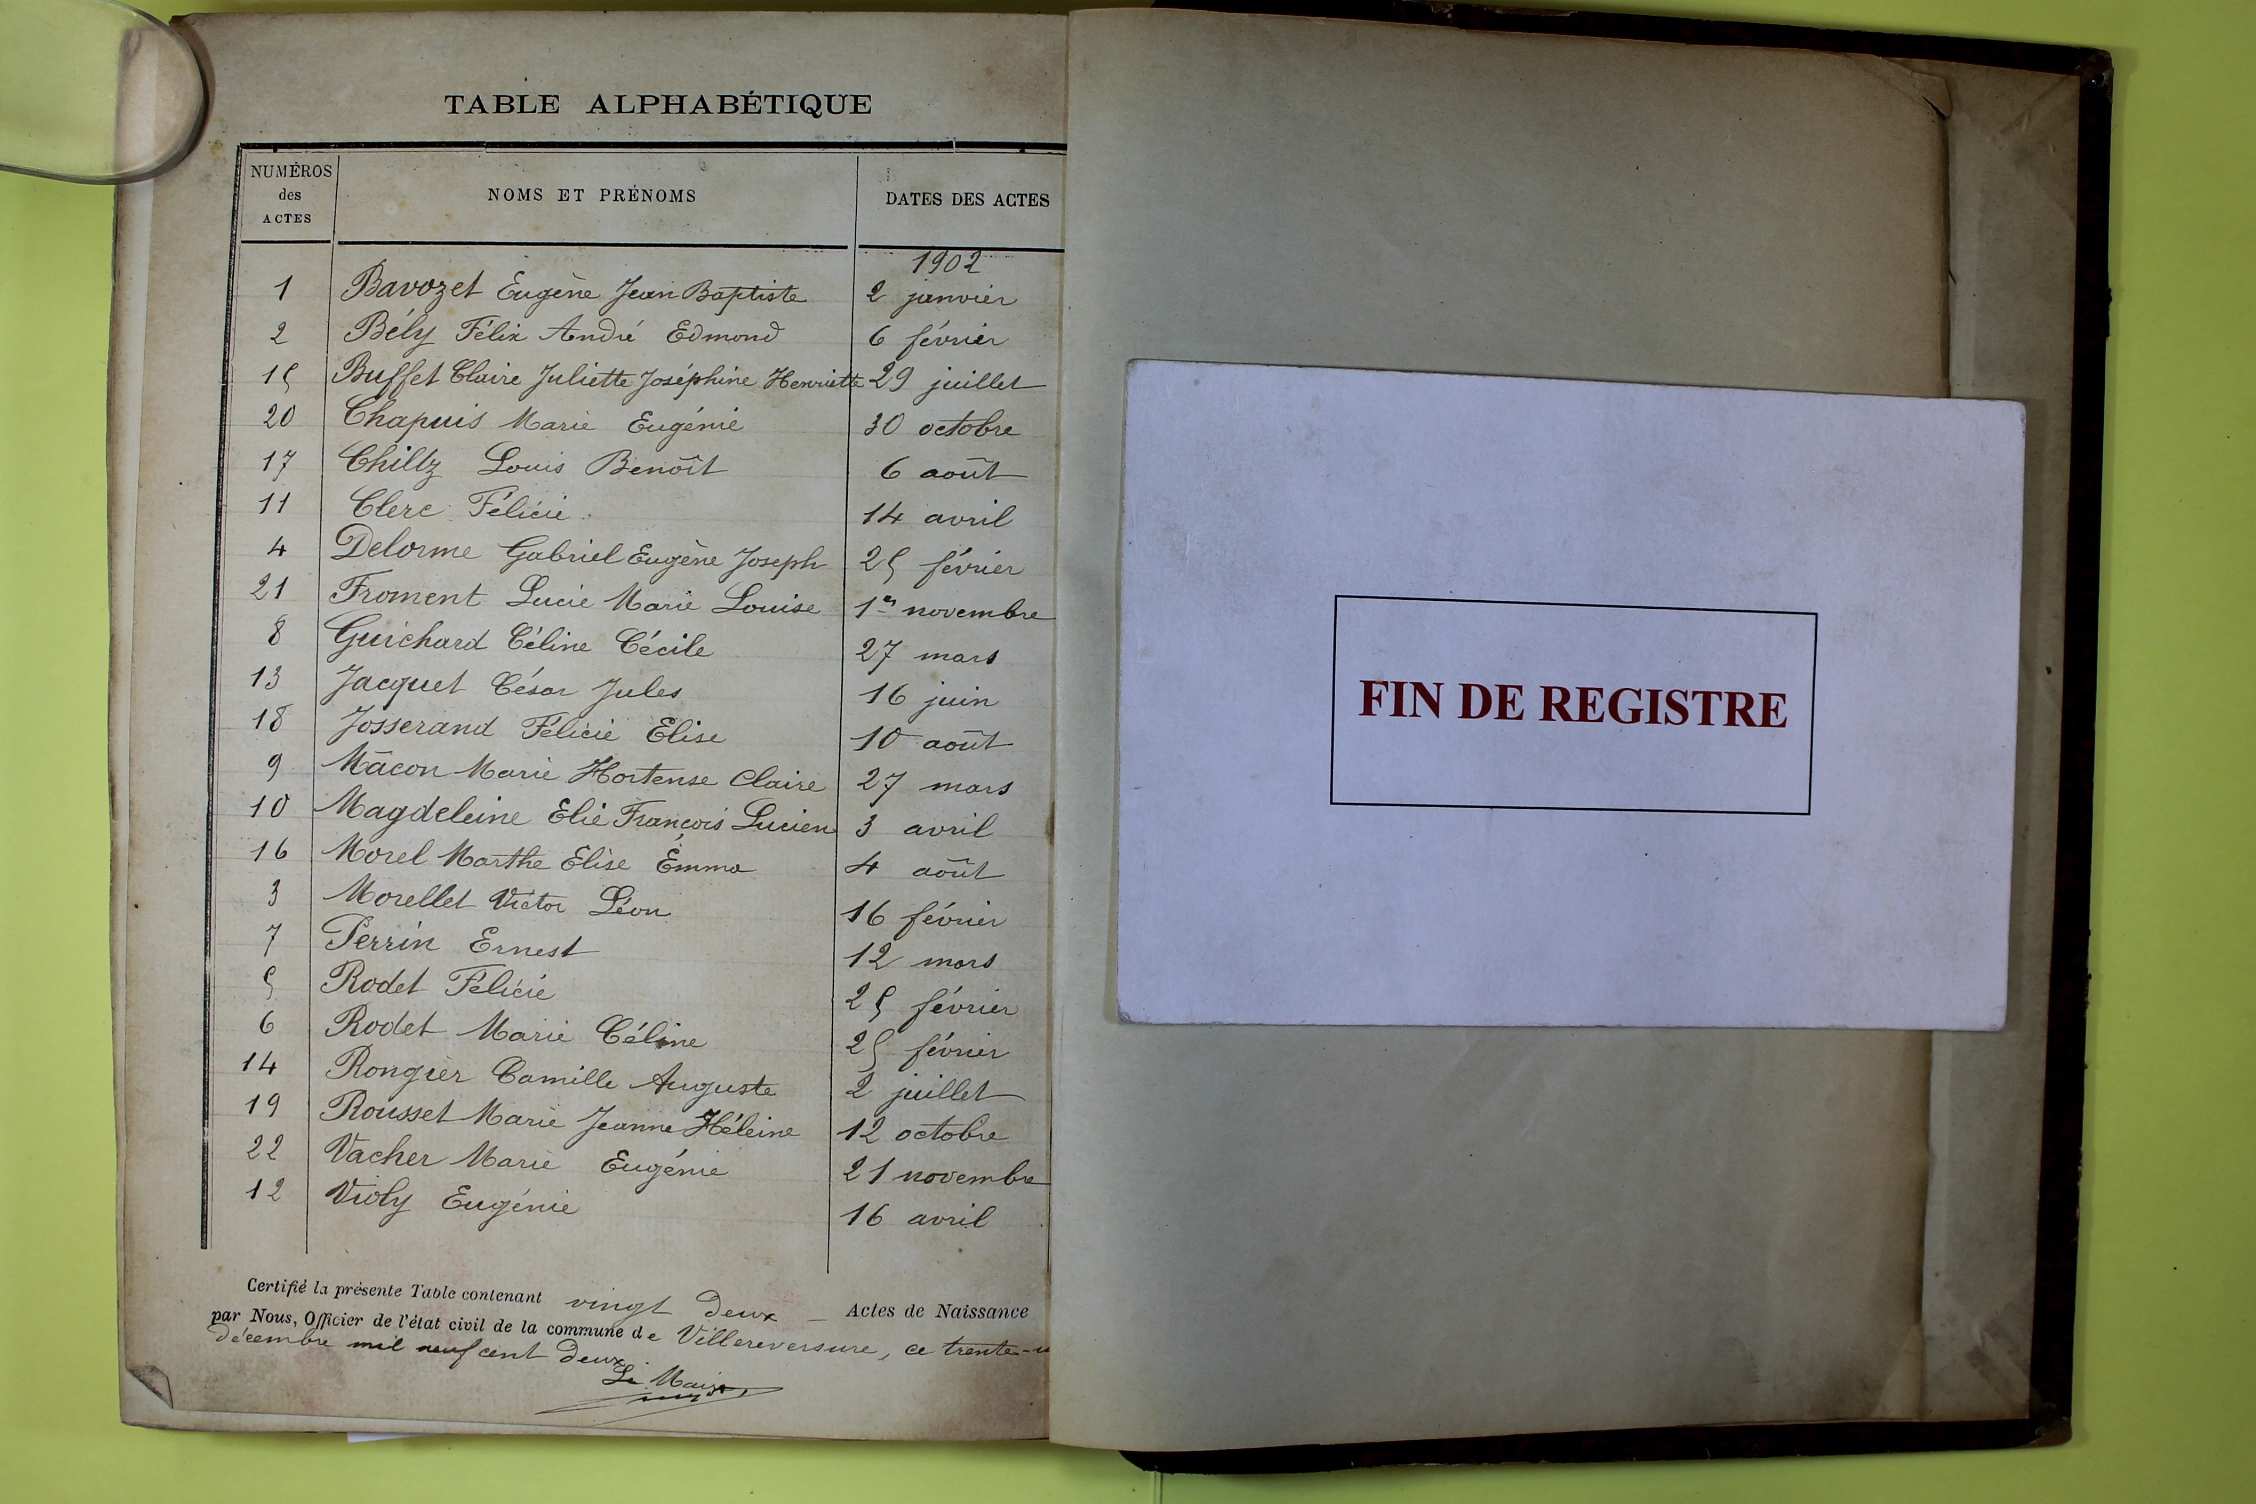 TABLE ALPHABÉTIQUE
NUMÉROS des ACTES NOMS ET PRÉNOMS DATES DES ACTES
1902
1 Bavozet Eugène Jean Baptiste 2 janvier
2 Bély Félix André Edmond 6 février
15 Buffet Claire Juliette Joséphine Henriette 29 juillet
20 Chapuis Marie Eugénie 30 octobre
17 Chiltz Louis Benoît 6 août
11 Clerc Félicie 14 avril
4 Delorme Gabriel Eugène Joseph 25 février
21 Froment Lucie Marie Louise 1er novembre
8 Guichard Céline Cécile 27 mars
13 Jacquet César Jules 16 juin
18 Josserand Félicie Elise 10 août
9 Mâcon Marie Hortense Claire 27 mars
10 Magdeleine Elie François Lucien 3 avril
16 Morel Marthe Elise Emma 4 août
3 Morellet Victor Léon 16 février
7 Perrin Ernest 12 mars
5 Rodet Félicie 25 février
6 Rodet Marie Céline 25 février
14 Rongier Camille Auguste 2 juillet
19 Rousset Marie Jeanne Héleine 12 octobre
22 Vacher Marie Eugénie 21 novembre
12 Violy Eugénie 16 avril
Certifié la présente Table contenant vingt deux Actes de Naissance
par Nous, Officier de l'état civil de la commune de Villereversure, ce trente-u
décembre mil neuf cent deux.
Le Maire,
FIN DE REGISTRE